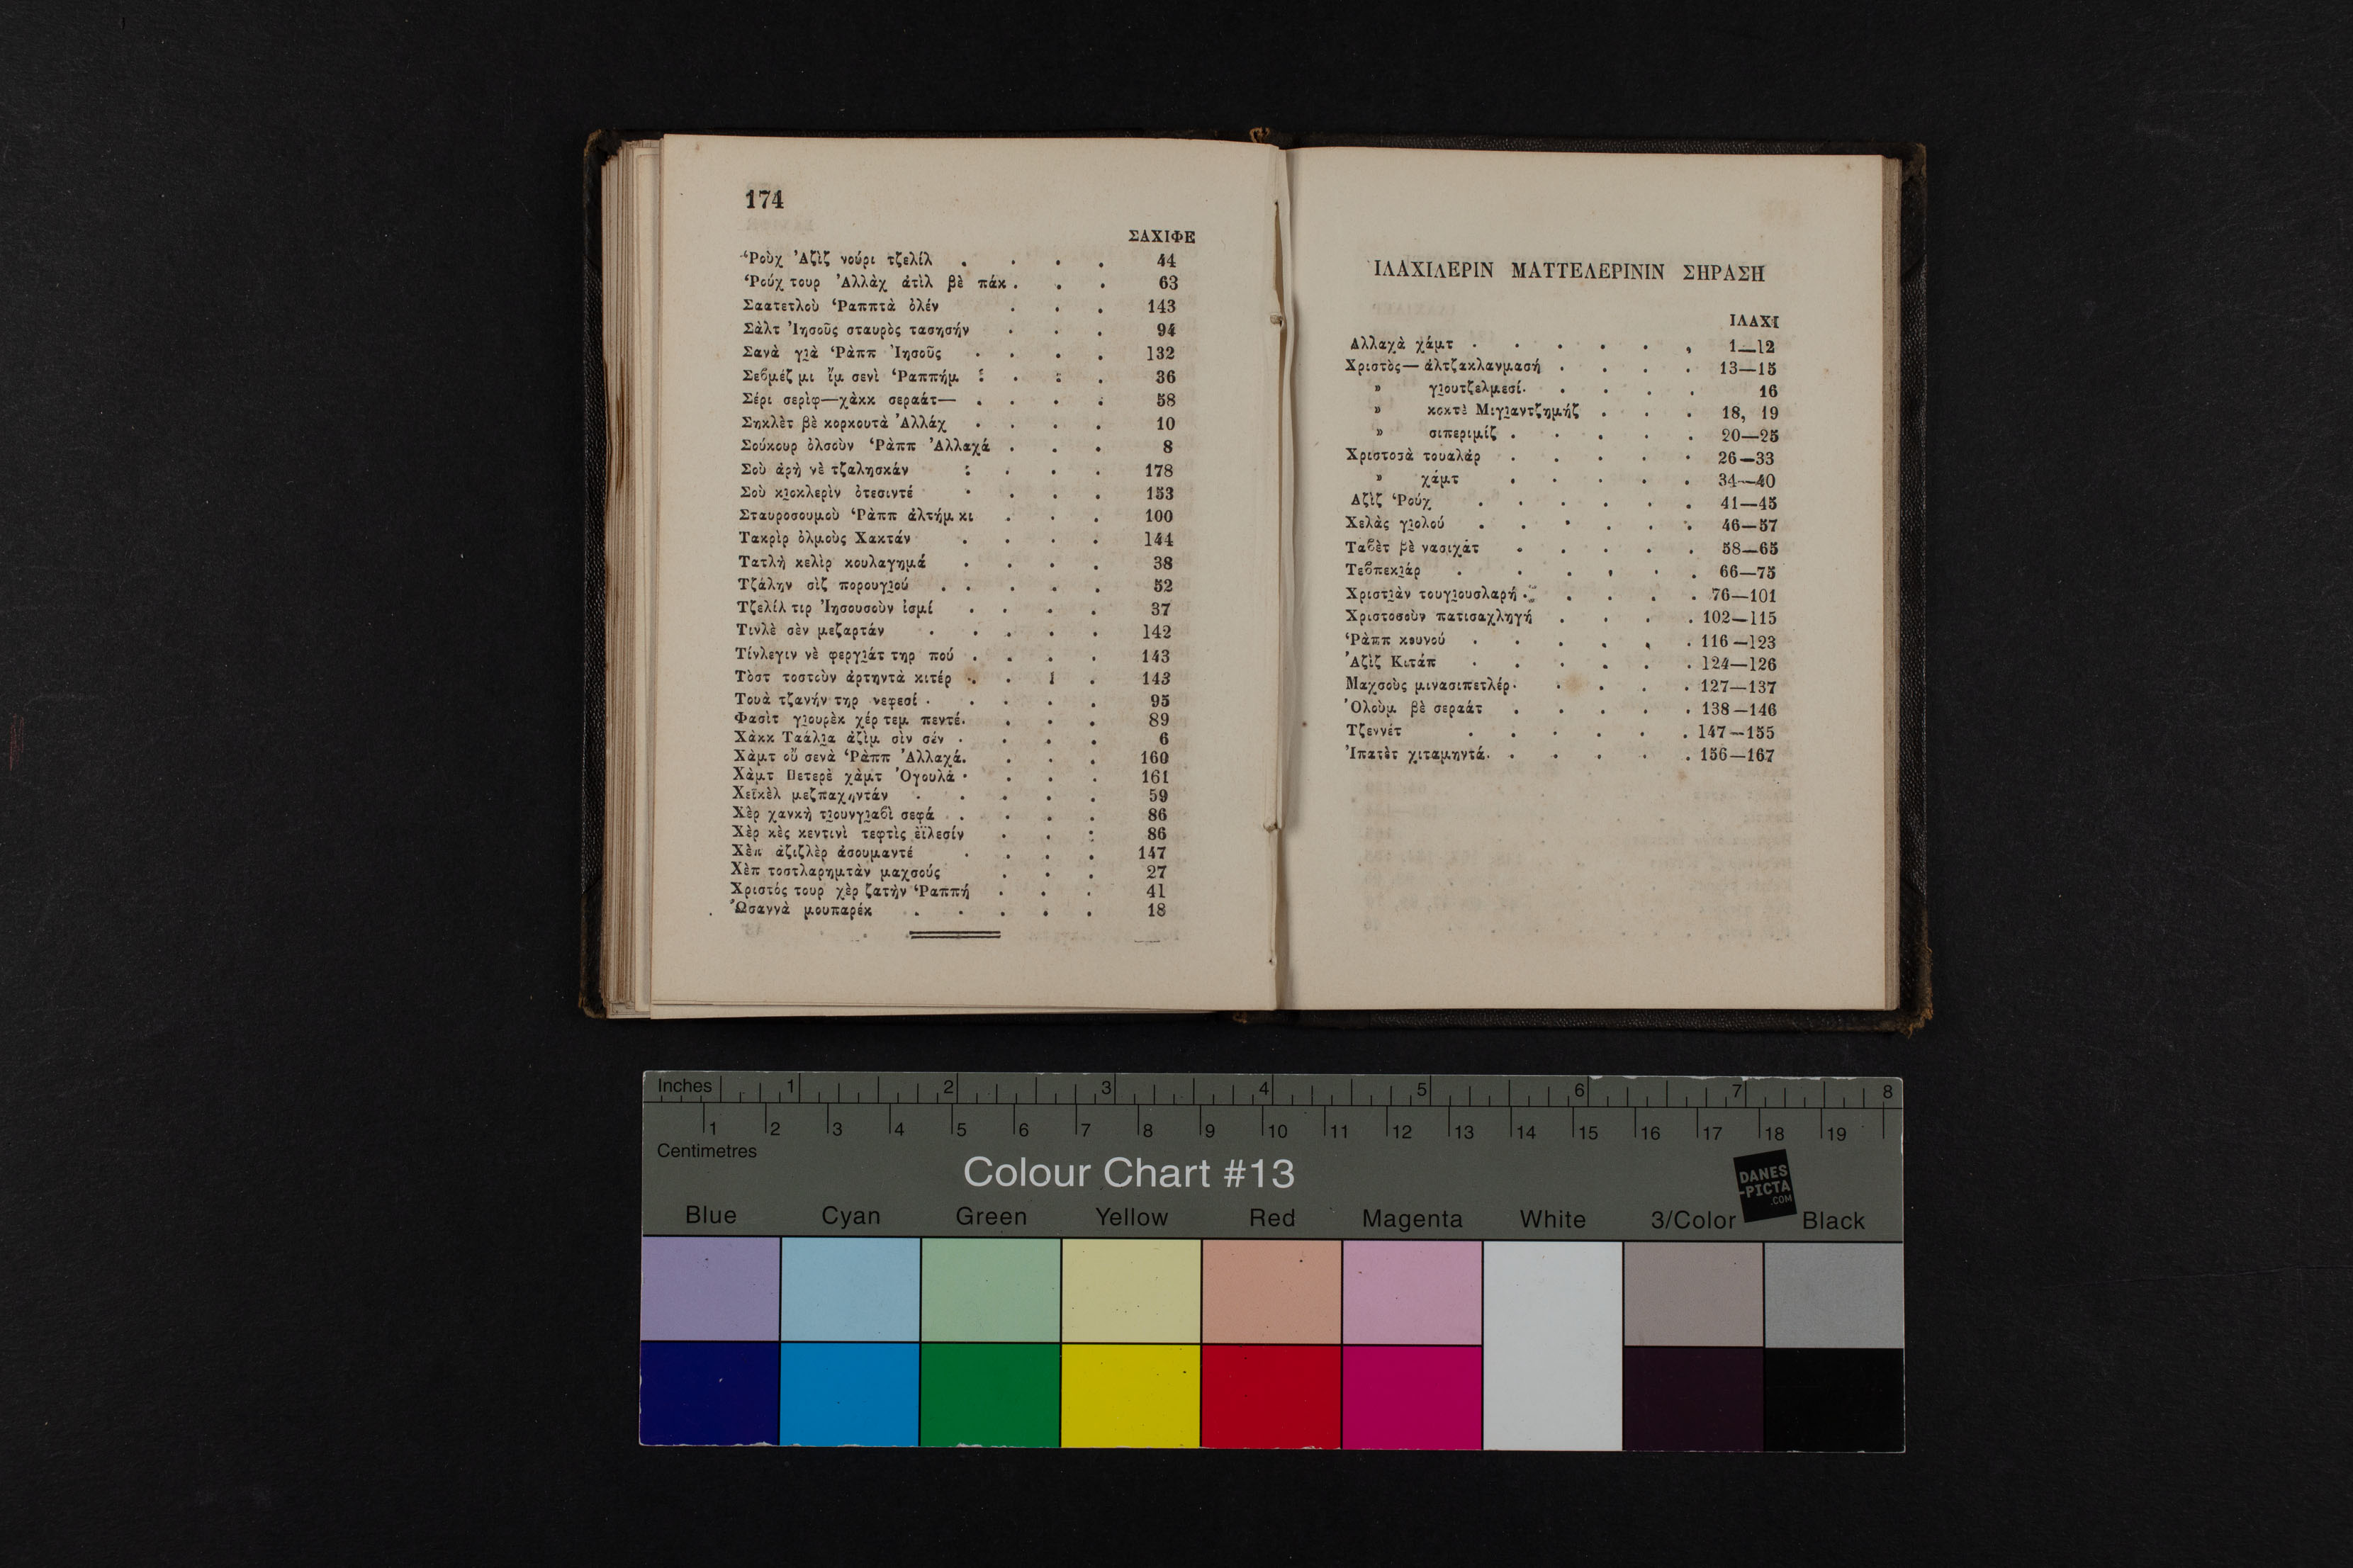 174
ΣΑΧΙΦΕ
Ῥοὺχ Ἀζὶζ νούρι τζελίλ . . . . 44
Ῥούχ τουρ Ἀλλὰχ ἀτὶλ βὲ πάκ . . . 63
Σαατετλοὺ Ῥαππτὰ ὀλέν . . . 143
Σὰλτ Ἰησοῦς σταυρὸς τασησήν . . . 94
Σανὰ γιὰ Ῥὰππ Ἰησοῦς . . . . 132
Σεβμέζ μι ἴμ σενὶ Ῥαππήμ : . : . 36
Σέρι σερὶφ—χὰκκ σεραάτ— . . . . 58
Σηκλὲτ βὲ κορκουτὰ Ἀλλάχ . . . . 10
Σούκουρ ὀλσοὺν Ῥὰππ Ἀλλαχά . . . 8
Σοὺ ἀρὴ νὲ τζαλησκάν : . . . 178
Σοὺ κιοκλερὶν ὀτεσιντέ . . . . 153
Σταυροσουμοὺ Ῥὰππ ἀλτήμ κι . . . 100
Τακρὶρ ὀλμοὺς Χακτάν . . . . 144
Τατλὴ κελὶρ κουλαγημά . . . . 38
Τζάλην σὶζ πορουγιού . . . . . 52
Τζελίλ τιρ Ἰησουσοὺν ἰσμί . . . . 37
Τινλὲ σὲν μεζαρτάν . . . . . 142
Τίνλεγιν νὲ φεργιάτ τηρ πού . . . . 143
Τὸστ τοστοὺν ἀρτηντὰ κιτέρ . . . . 143
Τουὰ τζανήν τηρ νεφεσί . . . . . 95
Φασὶτ γιουρὲκ χέρ τεμ πεντέ . . . . 89
Χὰκκ Ταάλια ἀζὶμ σὶν σέν . . . . . 6
Χὰμτ οὔ σενὰ Ῥὰππ Ἀλλαχά . . . . 160
Χὰμτ Πετερὲ χὰμτ Ὀγουλὰ . . . . 161
Χεϊκὲλ μεζπαχηντάν . . . . . 59
Χὲρ χανκὴ τιουνγιαβὶ σεφά . . . . 86
Χὲρ κὲς κεντινὶ τεφτὶς ἐϊλεσίν . . : 86
Χὲπ ἀζιζλὲρ ἀσουμαντέ . . . . 147
Χὲπ τοστλαρημτὰν μαχσούς . . . 27
Χριστός τουρ χὲρ ζατὴν Ῥαππή . . . 41
Ὡσαννὰ μουπαρέκ . . . . . 18
ἸΛΑΧΙΛΕΡΙΝ ΜΑΤΤΕΛΕΡΙΝΙΝ ΣΗΡΑΣΗ
ΙΛΑΧΙ
Αλλαχὰ χάμτ . . . . . . 1—12
Χριστὸς— ἀλτζακλανμασή . . . . 13—15
» γιουτζελμεσί . . . . . 16
» κοκτὲ Μιγιαντζημήζ . . . 18, 19
» σιπεριμίζ . . . . . 20—25
Χριστοσὰ τουαλάρ . . . . . 26—33
» χάμτ . . . . . 34—40
Αζὶζ Ῥούχ . . . . . . 41—45
Χελὰς γιολού . . . . . . 46—57
Ταβὲτ βὲ νασιχάτ . . . . . 58—65
Τεβπεκιάρ . . . . . . 66—75
Χριστιὰν τουγιουσλαρή . . . . . 76—101
Χριστοσοὺν πατισαχληγή . . . . 102—115
Ῥὰππ κουνού . . . . . . 116—123
Ἀζὶζ Κιτάπ . . . . . . 124—126
Μαχσοὺς μινασιπετλέρ . . . . . 127—137
Ὀλοὺμ βὲ σεραάτ . . . . . 138—146
Τζεννέτ . . . . . . 147—155
Ἰπατὲτ χιταμηντά . . . . . . 156—167
Inches 1 2 3 4 5 6 7 8
1 2 3 4 5 6 7 8 9 10 11 12 13 14 15 16 17 18 19
Centimetres
Colour Chart #13
DANES
-PICTA
.COM
Blue Cyan Green Yellow Red Magenta White 3/Color Black